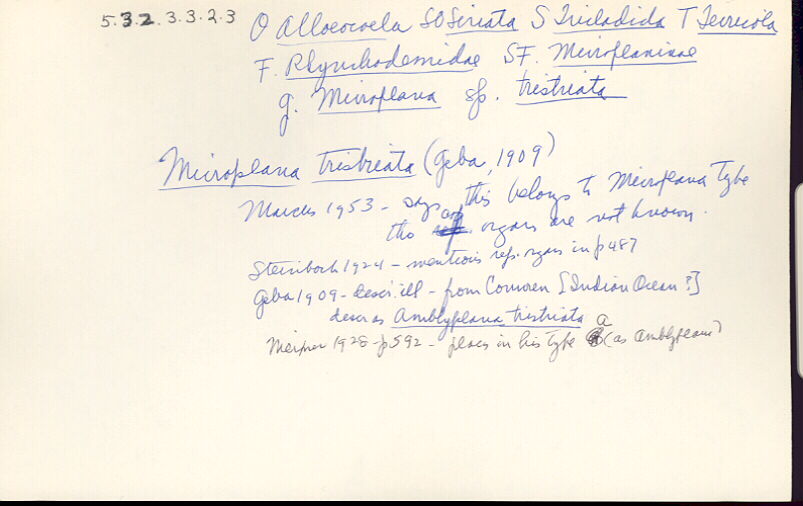 5.3.2.3.3.2.3 O Alloeocoela SO Seriata S Tricladida T Terricola
F. Rhynchodemidae SF. Microplaninae
g. Microplana sp. tristriata
Microplana tristriata (Geba, 1909)
Marcus 1953 - says this belongs to Microplana Type
tho cop. organs are not known.
Steinböck 1924 - mentions rep. organs in p 487
Geba 1909 - descr. ill - from Comoren [Indian Ocean?]
descr as Amblyplana tristriata
Meixner 1928 - p 592 - places in his type a (as Amblyplana)